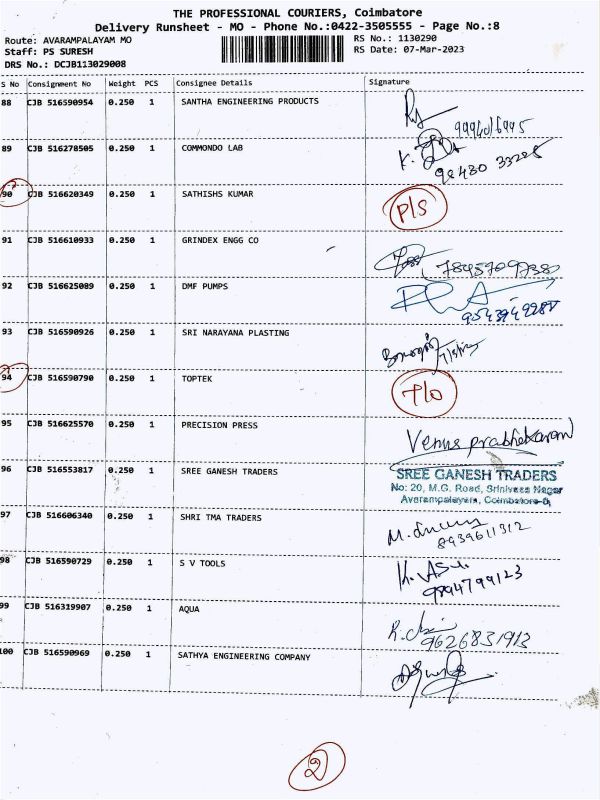 THE PROFESSIONAL COURIERS, Coimbatore
Delivery Runsheet - MO - Phone No.:0422-3505555 - Page No.:8
Route: AVARAMPALAYAM MO RS No.: 1130290
Staff: PS SURESH RS Date: 07-Mar-2023
DRS No.: DCJB113029008
S No Consignment No Weight PCS Consignee Details Signature
88 CJB 516590954 0.250 1 SANTHA ENGINEERING PRODUCTS
89 CJB 516278505 0.250 1 COMMONDO LAB
90 CJB 516620349 0.250 1 SATHISHS KUMAR P/S
91 CJB 516610933 0.250 1 GRINDEX ENGG CO
92 CJB 516625089 0.250 1 DMF PUMPS
93 CJB 516590926 0.250 1 SRI NARAYANA PLASTING
94 CJB 516590790 0.250 1 TOPTEK T/O
95 CJB 516625570 0.250 1 PRECISION PRESS Venus prabhakaran
96 CJB 516553817 0.250 1 SREE GANESH TRADERS SREE GANESH TRADERS
No: 20, M.G. Road, Srinivasa Nagar
Avarampalayam, Coimbatore-6,
97 CJB 516606340 0.250 1 SHRI TMA TRADERS
8939611312
98 CJB 516590729 0.250 1 S V TOOLS
9994799123
99 CJB 516319907 0.250 1 AQUA
9626831913
100 CJB 516590969 0.250 1 SATHYA ENGINEERING COMPANY
2